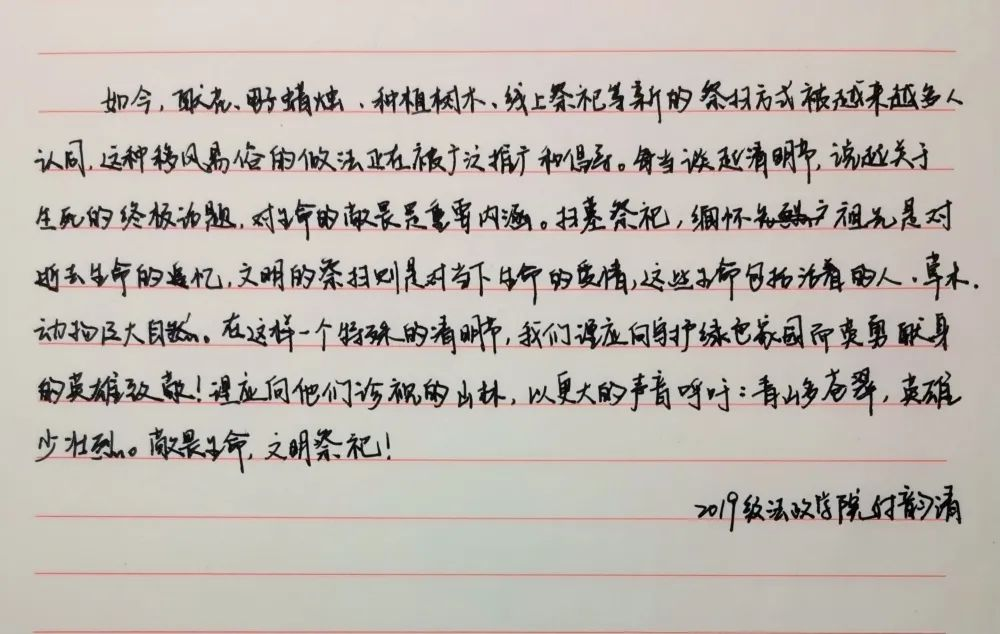 如今，献花、电子蜡烛、种植树木、线上祭祀等新的祭扫方式被越来越多人
认同，这种移风易俗的做法正在被广泛推广和倡导。每当谈起清明节，说起关于
生死的终极话题，对生命的敬畏是重要内涵。扫墓祭祀，缅怀先祖先是对
逝去生命的追忆，文明的祭扫则是对当下生命的爱惜，这些生命包括活着的人、草木、
动物巨大自然。在这样一个特殊的清明节，我们理应向守护绿色家园而英勇献身
的英雄致敬！理应向他们珍视的山林，以更大的声音呼吁：青山多苍翠，英雄
少壮烈。敬畏生命，文明祭祀！
2019级法政学院付韵清